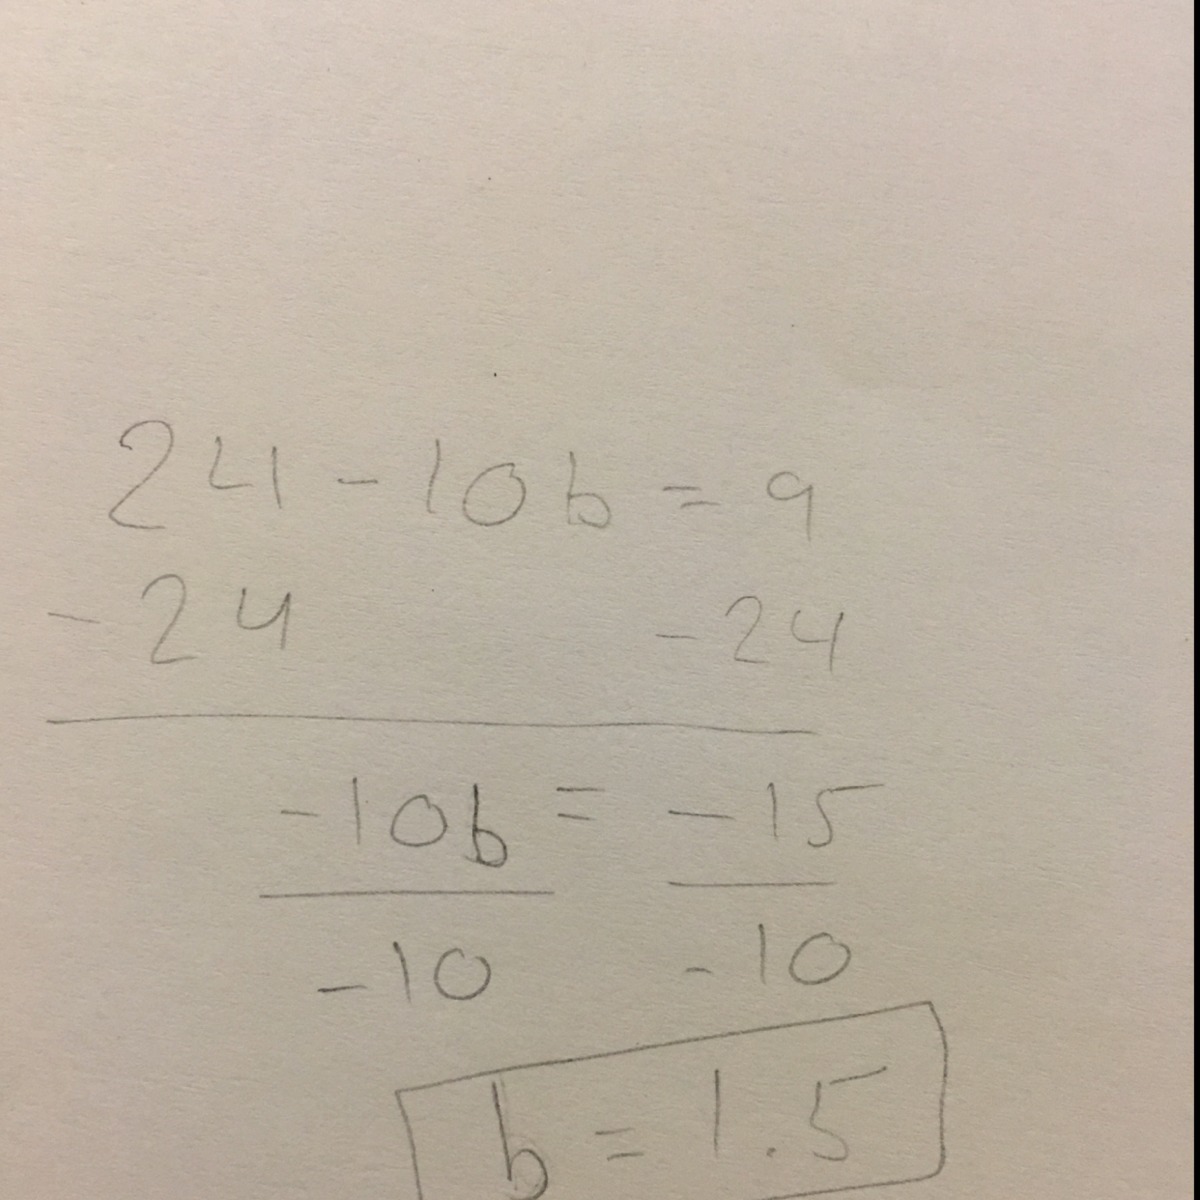 24 - 10b = 9
- 24 - 24
-10b = -15
-10 -10
b = 1.5